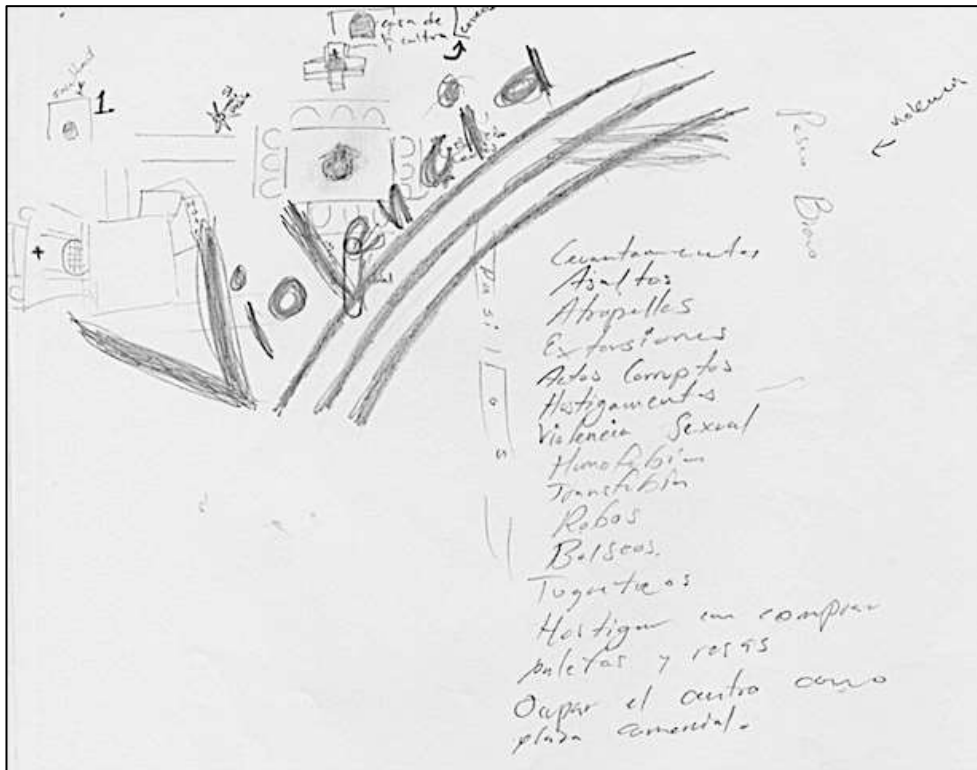 casa de
la cultura
1
violencia
Paseo Bravo
Pasillos
Levantamientos
Asaltos
Atropellos
Extorsiones
Actos Corruptos
Hostigamientos
Violencia Sexual
Homofobia
Transfobia
Robos
Bolseos.
Hostigan con comprar
paletas y rosas
Ocupar el centro como
plaza comercial.